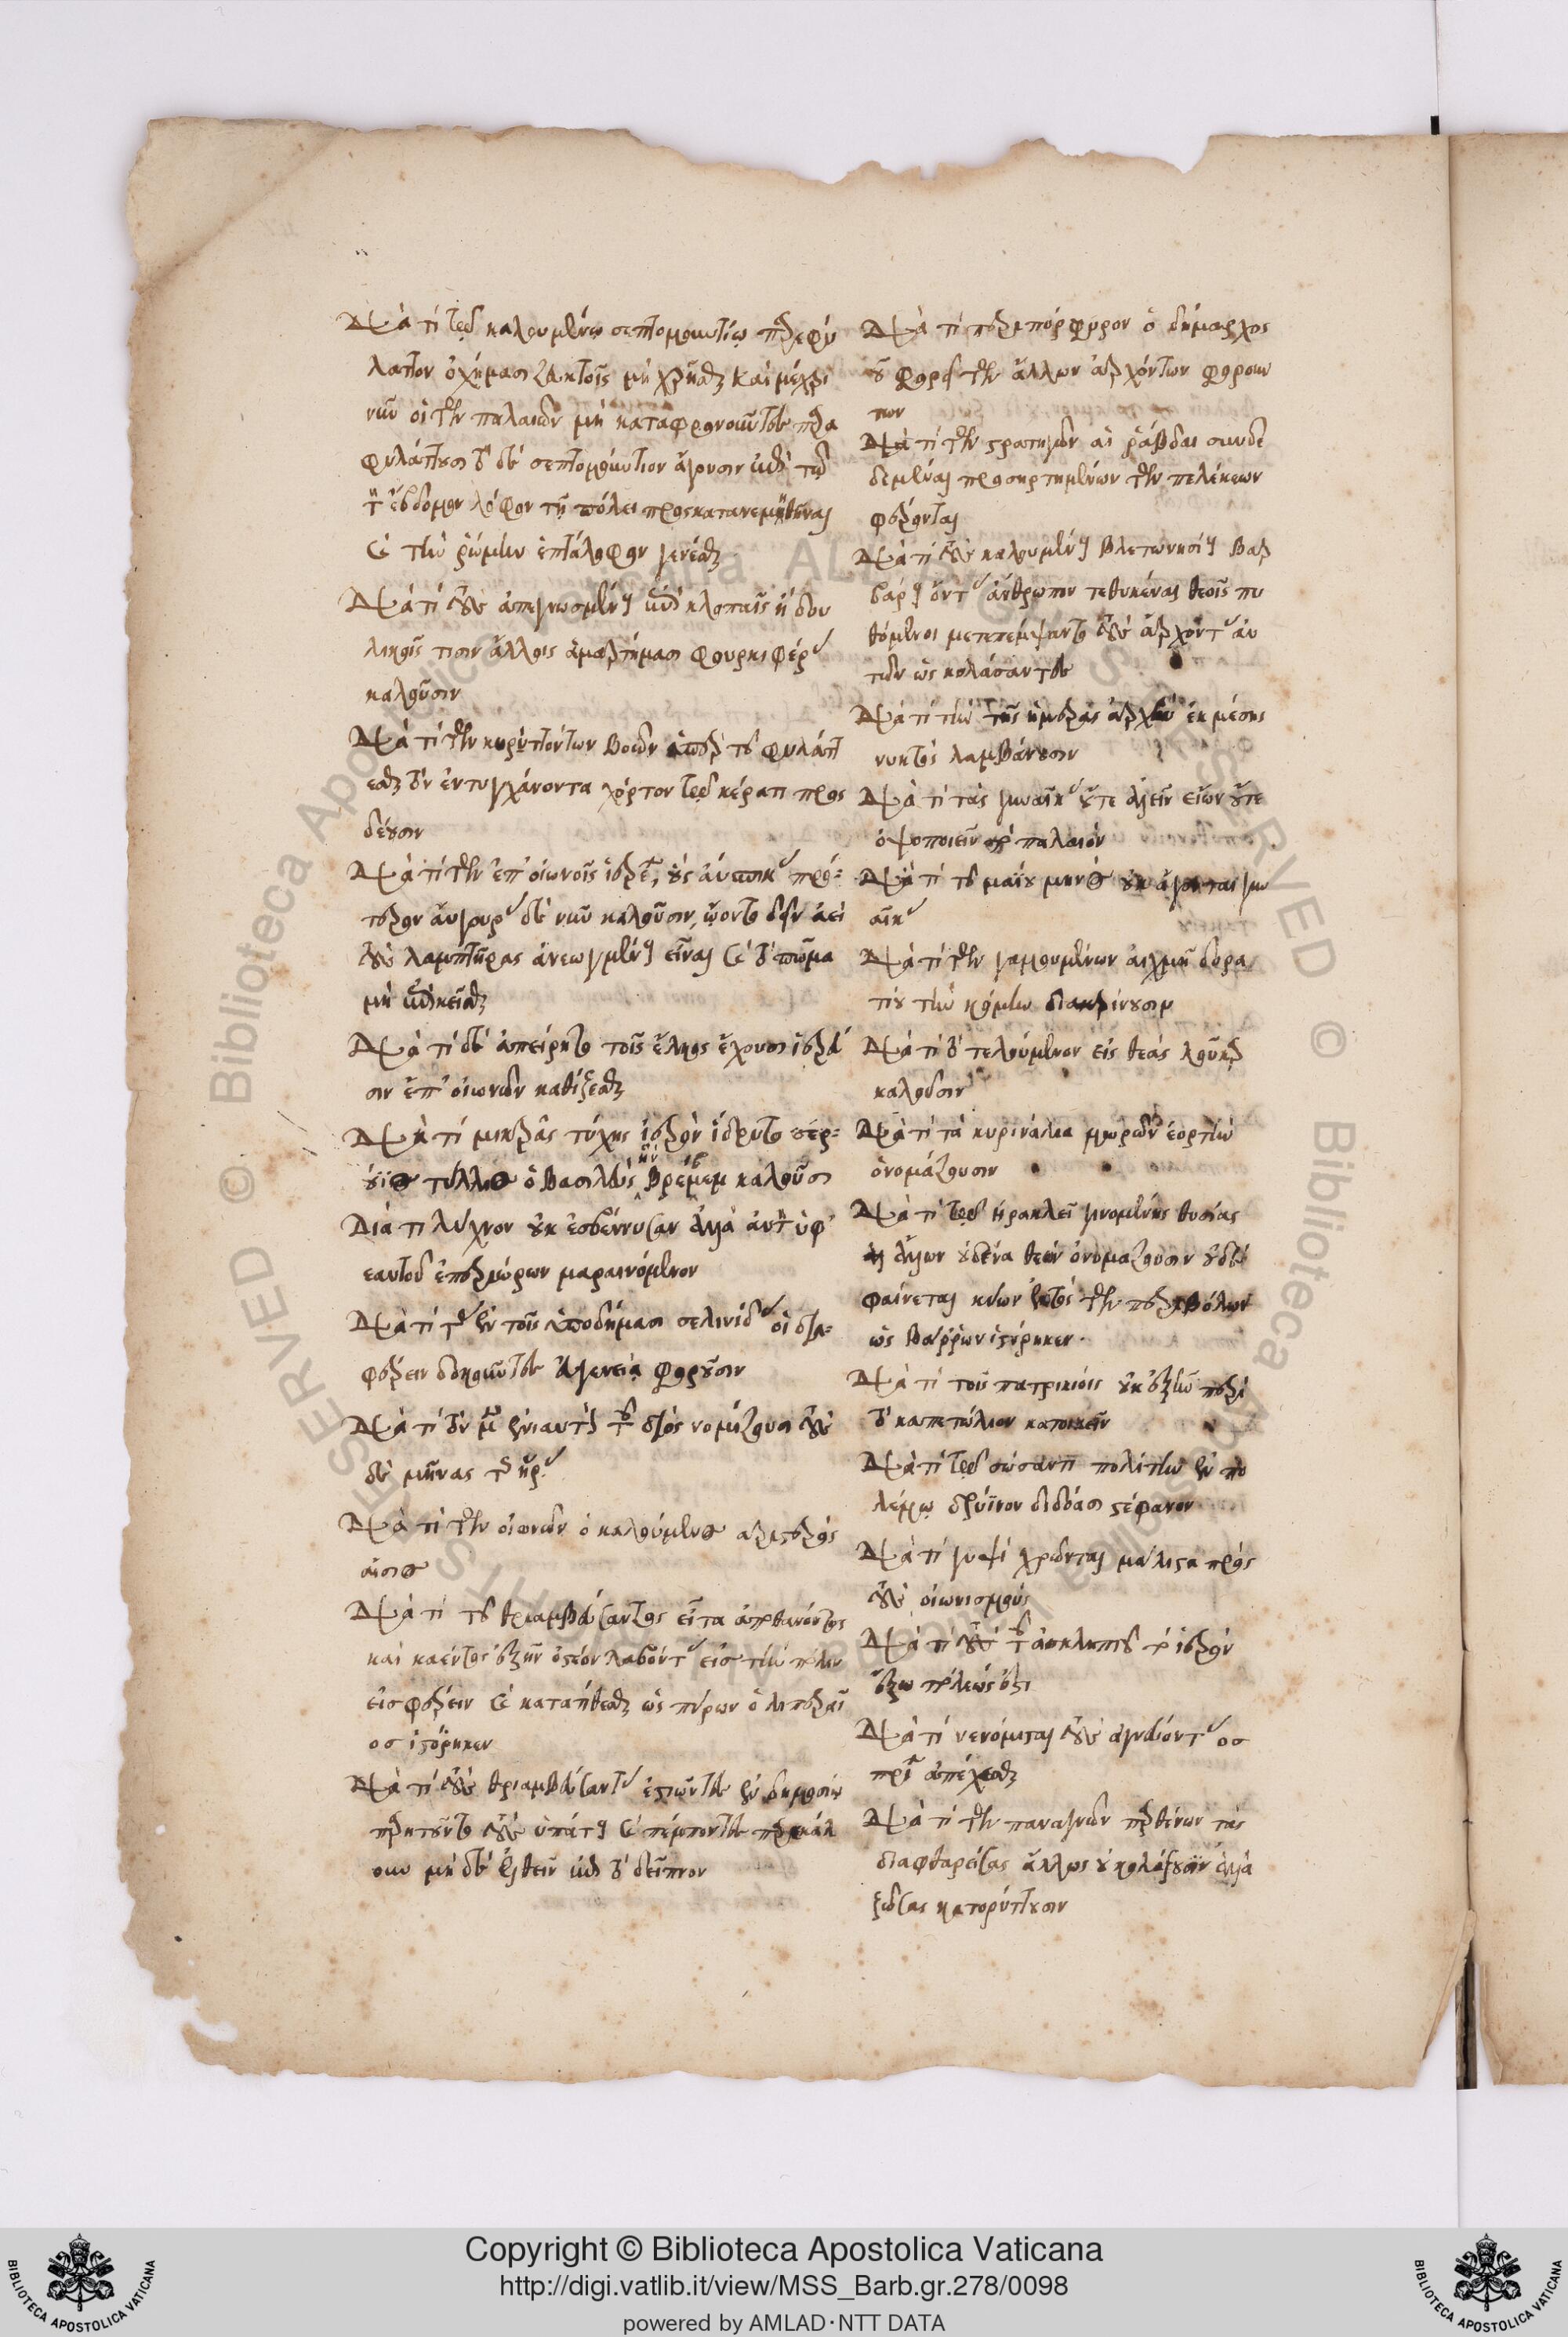 Διὰ τί τῷ καλουμένῳ σεπτομουντίῳ παρεφύ
λαττον ὀχήμασι ζευκτοῖς μὴ χρῆσθαι καὶ μέχρι
νῦν οἱ τῶν παλαιῶν μὴ καταφρονοῦντες παρα
φυλάττουσι τὸ δὲ σεπτομούντιον ἄγουσιν ἐπὶ τῷ
τὸν ἕβδομον λόφον τῇ πόλει προσκατανεμηθῆναι
καὶ τὴν ῥώμην ἑπτάλοφον γενέσθαι
Διὰ τί τοὺς ἀπεγνωσμένους ἐπὶ κλοπαῖς ἢ δου
λικοῖς τισιν ἄλλοις ἁμαρτήμασι φουρκιφέρους
καλοῦσιν
Διὰ τί τῶν κυριττόντων βοῶν ὑπὲρ τοῦ φυλάττ
εσθαι τὸν ἐντυγχάνοντα χόρτον τῷ κέρατι προσ
δέουσιν
Διὰ τί τῶν ἐπ' οἰωνοῖς ἱερέων, οὓς αὔσπικας πρό-
τερον αὔγουρας δὲ νῦν καλοῦσιν, ᾤοντο δεῖν ἀεὶ
τοὺς λαμπτῆρας ἀνεωγμένους εἶναι καὶ τὸ πῶμα
μὴ ἐπικεῖσθαι
Διὰ τί δὲ ἀπείρητο τοῖς ἕλκος ἔχουσι ἱερεῦ
σιν ἐπ' οἰωνῶν καθίζεσθαι
Διὰ τί μικρᾶς τύχης ἱερὸν ἵδρυτο σέρ-
ουιος τύλλιος ὁ βασιλεὺς ἣν βρέβεμ καλοῦσι
Διά τι λύχνον οὐκ ἐσβέννυσαν ἀλλὰ αὐτὸν ὑφ'
ἑαυτοῦ ἐπεριώρων μαραινόμενον
Διὰ τί τὰς ἐν τοῖς ὑποδήμασι σεληνίδας οἱ δια-
φέρειν δοκοῦντες εὐγενείᾳ φοροῦσιν
Διὰ τί τὸν μὲν ἐνιαυτὸν τοῦ διὸς νομίζουσι τοὺς
δὲ μῆνας τῆς ἥρας
Διὰ τί τῶν οἰωνῶν ὁ καλούμενος ἀριστερὸς
αἴσιος
Διὰ τί τοῦ θριαμβεύσαντος εἶτα ἀποθανόντος
καὶ καέντος ἐξῆν ὀστέον λαβόντας εἰς τὴν πόλιν
εἰσφέρειν καὶ κατατίθεσθαι ὡς πύρων ὁ λιπαραῖ
ος ἱστόρηκεν
Διὰ τί τοὺς θριαμβεύσαντας ἑστιῶντες ἐν δημοσίῳ
παρῃτοῦντο τοὺς ὑπάτους καὶ πέμποντες παρεκάλ
ουν μὴ δὲ ἐλθεῖν ἐπὶ τὸ δεῖπνον
Διὰ τί περιπόρφυρον ὁ δήμαρχος
οὐ φορεῖ τῶν ἄλλων ἀρχόντων φορουν
των
Διὰ τί τῶν στρατηγῶν αἱ ῥάβδοι συνδε
δεμέναι προσηρτημένων τῶν πελέκεων
φέρονται
Διὰ τί τοὺς καλουμένους βλετωνησίους βαρ
βάρους ὄντας ἄνθρωπον τεθυκέναι θεοῖς πυ
θόμενοι μετεπέμψαντο τοὺς ἄρχοντας αὐ
τῶν ὡς κολάσαντες
Διὰ τί τὴν τῆς ἡμέρας ἀρχὴν ἐκ μέσης
νυκτὸς λαμβάνουσιν
Διὰ τί τὰς γυναῖκας οὔτε ἀλεῖν εἴων οὔτε
ὀψοποιεῖν τὸ παλαιόν
Διὰ τί τοῦ μαΐου μηνὸς οὐκ ἄγονται γυν
αῖκας
Διὰ τί τῶν γαμουμένων αἰχμῇ δορα
τίου τὴν κόμην διακρίνουσιν
Διὰ τί τὸ τελούμενον εἰς θεὰς λοῦκαρ
καλοῦσιν
Διὰ τί τὰ κυρινάλια μωρῶν ἑορτὴν
ὀνομάζουσιν
Διὰ τί τῷ ἡρακλεῖ γινομένης θυσίας
ἄλλον οὐδένα θεῶν ὀνομάζουσιν οὐδὲ
φαίνεται κύων ἐντὸς τῶν περιβόλων
ὡς βάρρων ἱστόρηκεν.
Διὰ τί τοῖς πατρικίοις οὐκ ἐξῆν περὶ
τὸ καπετώλιον κατοικεῖν
Διὰ τί τῷ σώσαντι πολίτην ἐν πο
λέμῳ δρύϊνον διδόασι στέφανον
Διὰ τί γυψὶ χρῶνται μάλιστα πρὸς
τοὺς οἰωνισμούς
Διὰ τί τοῦ ἀσκληπιοῦ τὸ ἱερὸν
ἔξω πόλεώς ἐστι
Διὰ τί νενόμισται τοὺς ἁγνεύοντας ὀσ
πρίων ἀπέχεσθαι
Διὰ τί τῶν παναγνῶν παρθένων τὰς
διαφθαρείσας ἄλλως οὐ κολάζουσιν ἀλλὰ
ζώσας κατορύττουσιν
Copyright © Biblioteca Apostolica Vaticana
http://digi.vatlib.it/view/MSS_Barb.gr.278/0098
powered by AMLAD·NTT DATA